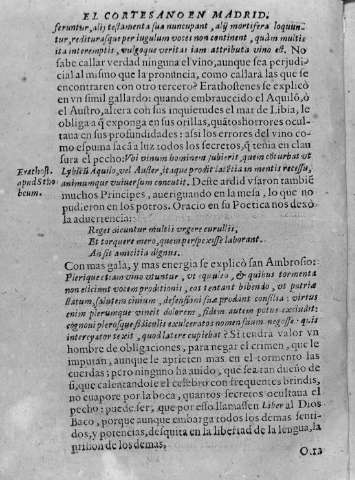 EL CORTESANO EN MADRID.
feruntur, alij testamenta sua nuncupant, alij mortifera loquun-
tur, redituras que per iugulum voces non continent, quàm multis
ita interemptis, vulgoque veritas iam attributa vino est. No
sabe callar verdad ninguna el vino, aunque sea perjudi-
cial al mismo que la pronũcia, como callará las que se
encontraren con otro tercero? Erathostenes se explicò
en vn simil gallardo: quando embraucecido el Aquilõ, ò
el Austro, altera con sus inquietudes el mar de Libia, le
obliga a q̃ exponga en sus orillas, quãtos horrores ocul-
taua en sus profundidades: assi los errores del vino co-
mo espuma sacã a luz todos los secretos, q̃ tenia en clau
sura el pecho: Voi vinum hominem subierit, quem cõturbas vt
Erathost.
Lybicũ Aquilo, vel Auster, ita que prodit latẽtia in mentis recessu,
apud Stho
animumque vniuersum concutit. Deste ardid vsaron tambiẽ
bæum.
muchos Principes, aueriguando en la mesa, lo que no
pudieron en los potros. Oracio en su Poetica nos dexò
la aduertencia:
Reges dicuntur multis vrgere curullis,
Et torquere mero, quem perspexisse laborant.
An sit amicitia dignus.
Con mas gala, y mas energia se explicò san Ambrosio:
Plerique etiam vino vtuntur, vt equuleo, & quibus tormenta
non eliciunt vocem proditionis, eos tentant bibendo, vt patriæ
statum, salutem ciuium, defensionis suæ prodant consilia: virtus
enim plerumque vincit dolorem, fidem autem potus excludit:
cognoui plerosque fidiculis exulceratos nomen suum negasse: quis
interrogator exit, quod latere cupiebat? Si tendra valor vn
hombre de obligaciones, para negar el crimen, que le
imputan, aunque le aprieten mas en el tormento las
cuerdas; pero ninguno ha auido, que sea tan dueño de
si, que calentandole el celebro con frequentes brindis,
no euapore por la boca, quantos secretos ocultaua el
pecho: puede ser, que por esso llamassen Liber al Dios
Baco, porque aunque embarga todos los demas senti-
dos, y potencias, desquita en la libertad de la lengua, la
prision de los demas.
Ora